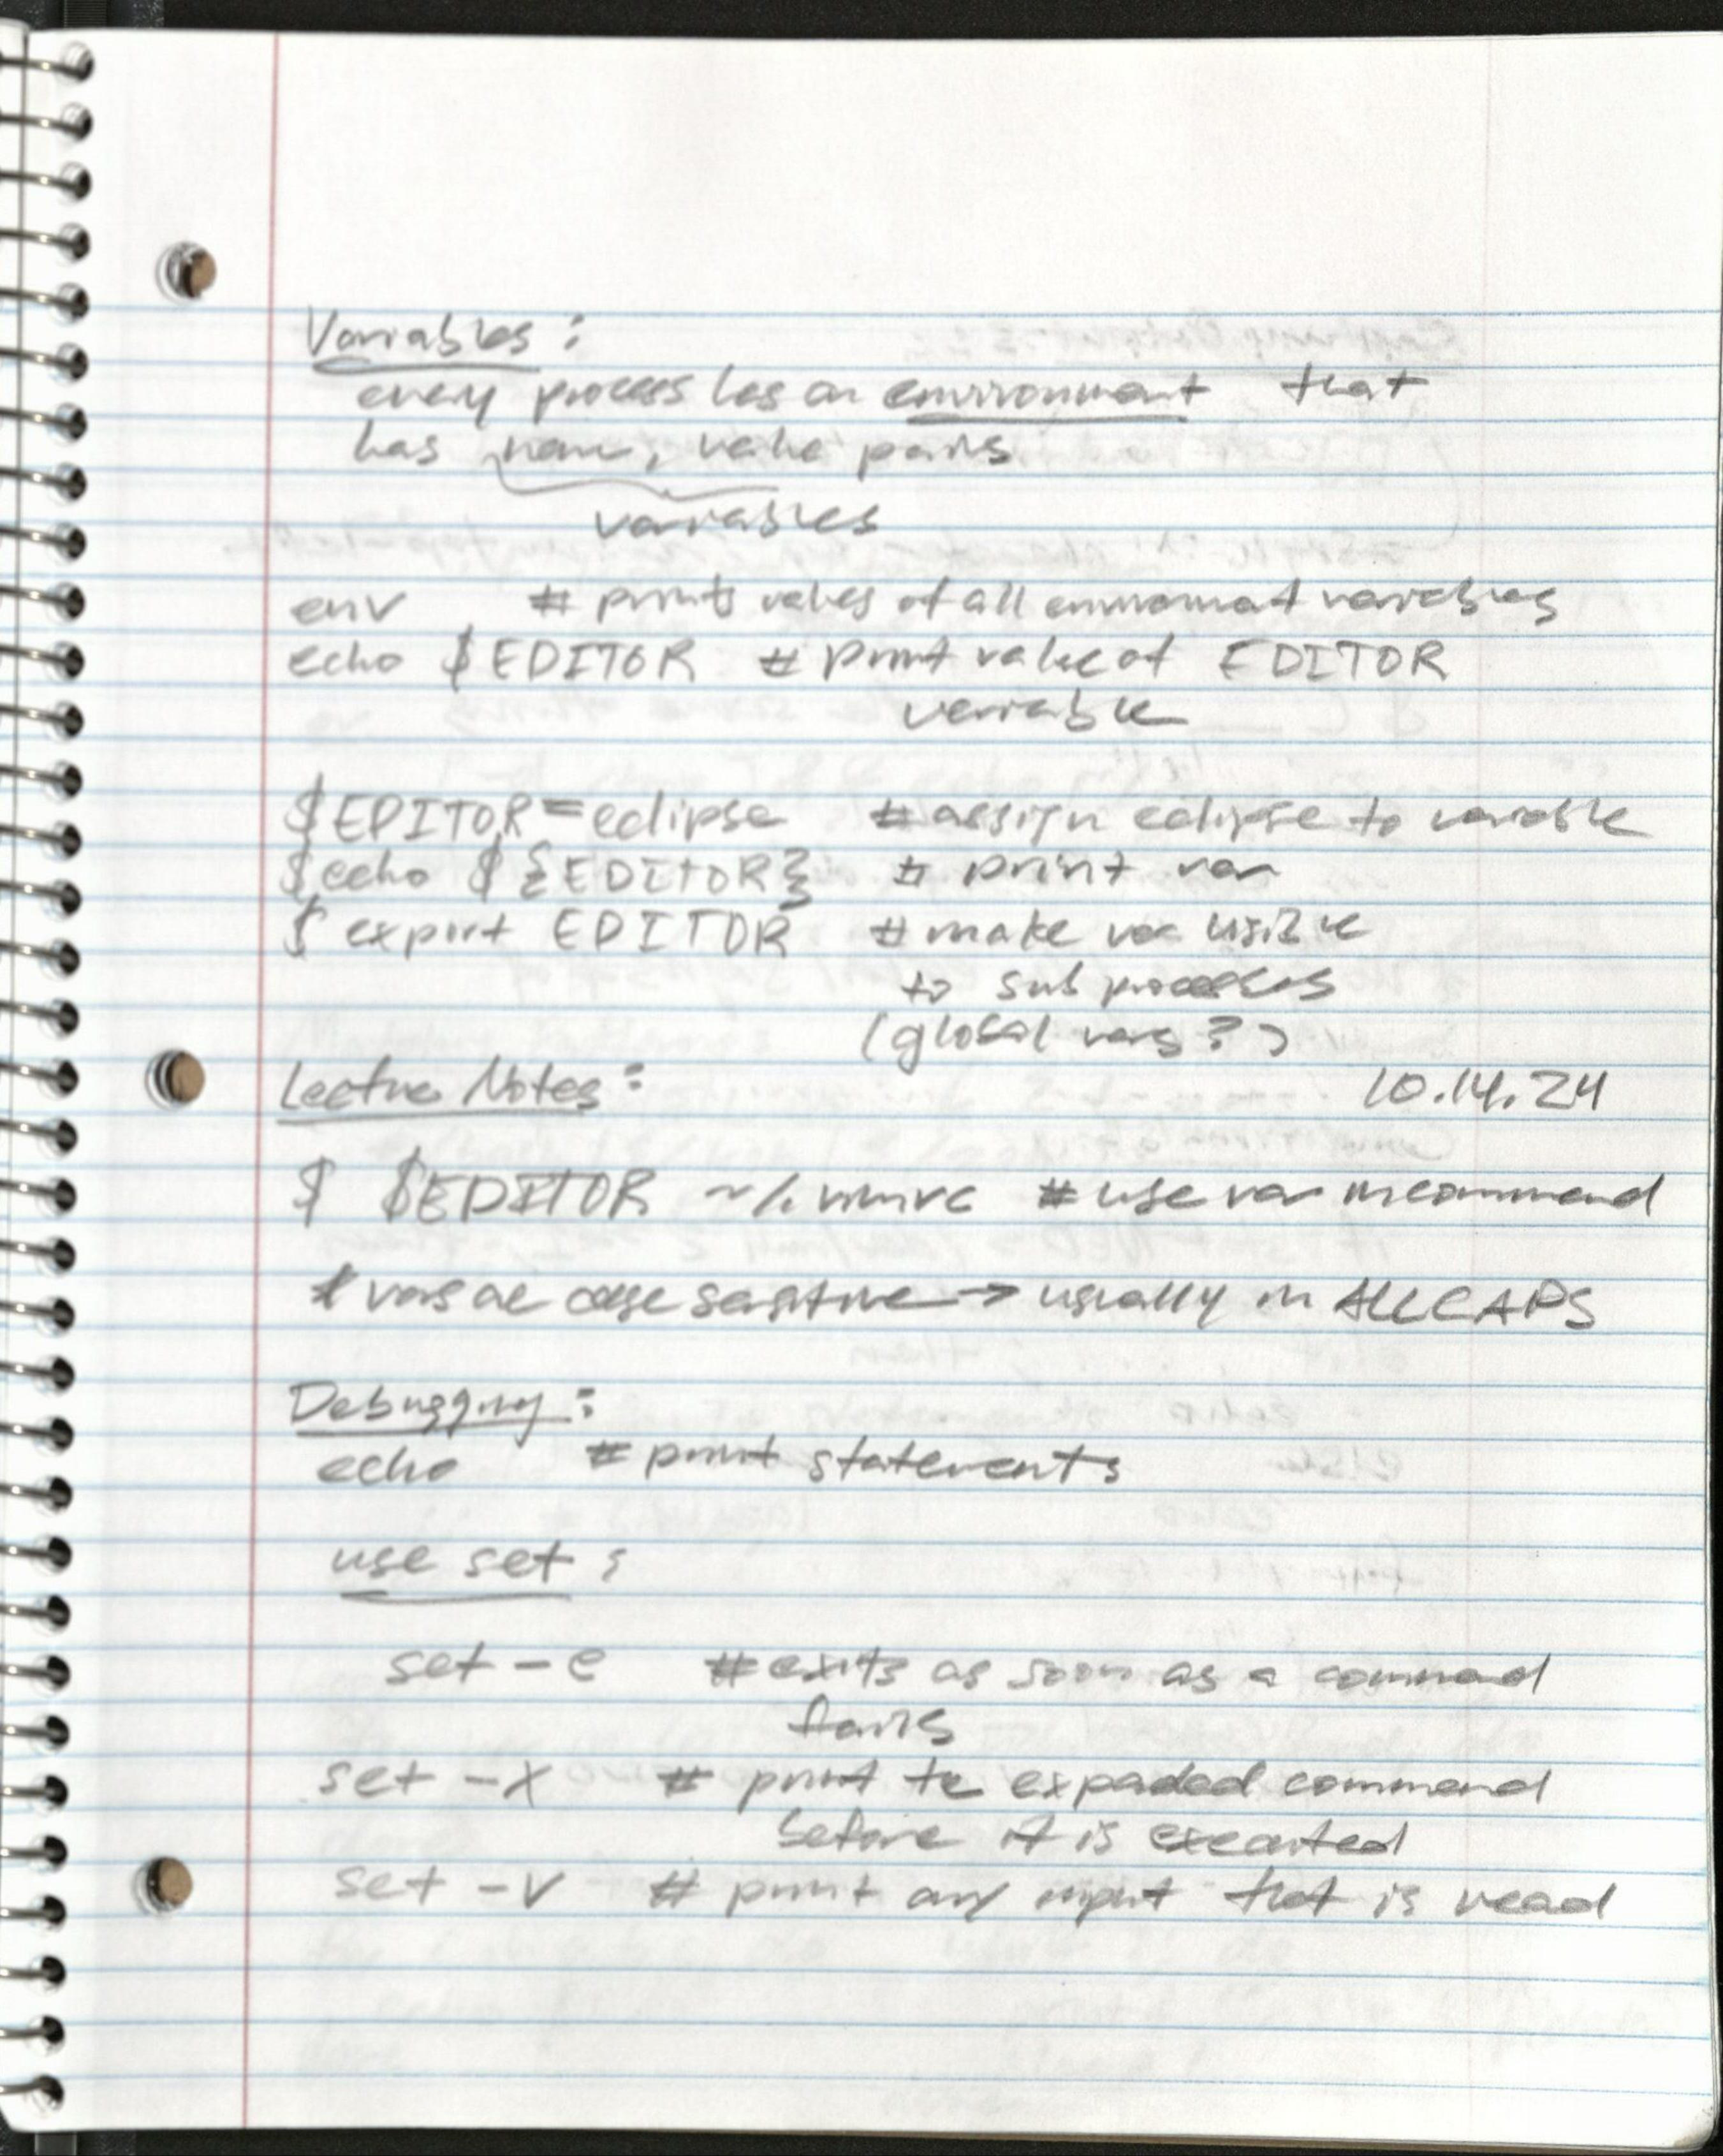 Variables :
every process has an environment that
has name, value pairs
variables
env # prints values of all environment variables
echo $EDITOR # print value of EDITOR
variable
$EDITOR=eclipse # assign eclipse to variable
$echo ${EDITOR} # print var
$ export EDITOR # make var visible
to sub processes
(global vars?)
Lecture Notes: 10.14.24
$ $EDITOR ~/.vimrc # use var in command
* vars are case sensitive → usually in ALL CAPS
Debugging:
echo # print statements
use set :
set -e # exits as soon as a command
fails
set -x # print the expanded command
before it is executed
set -v # print any input that is read